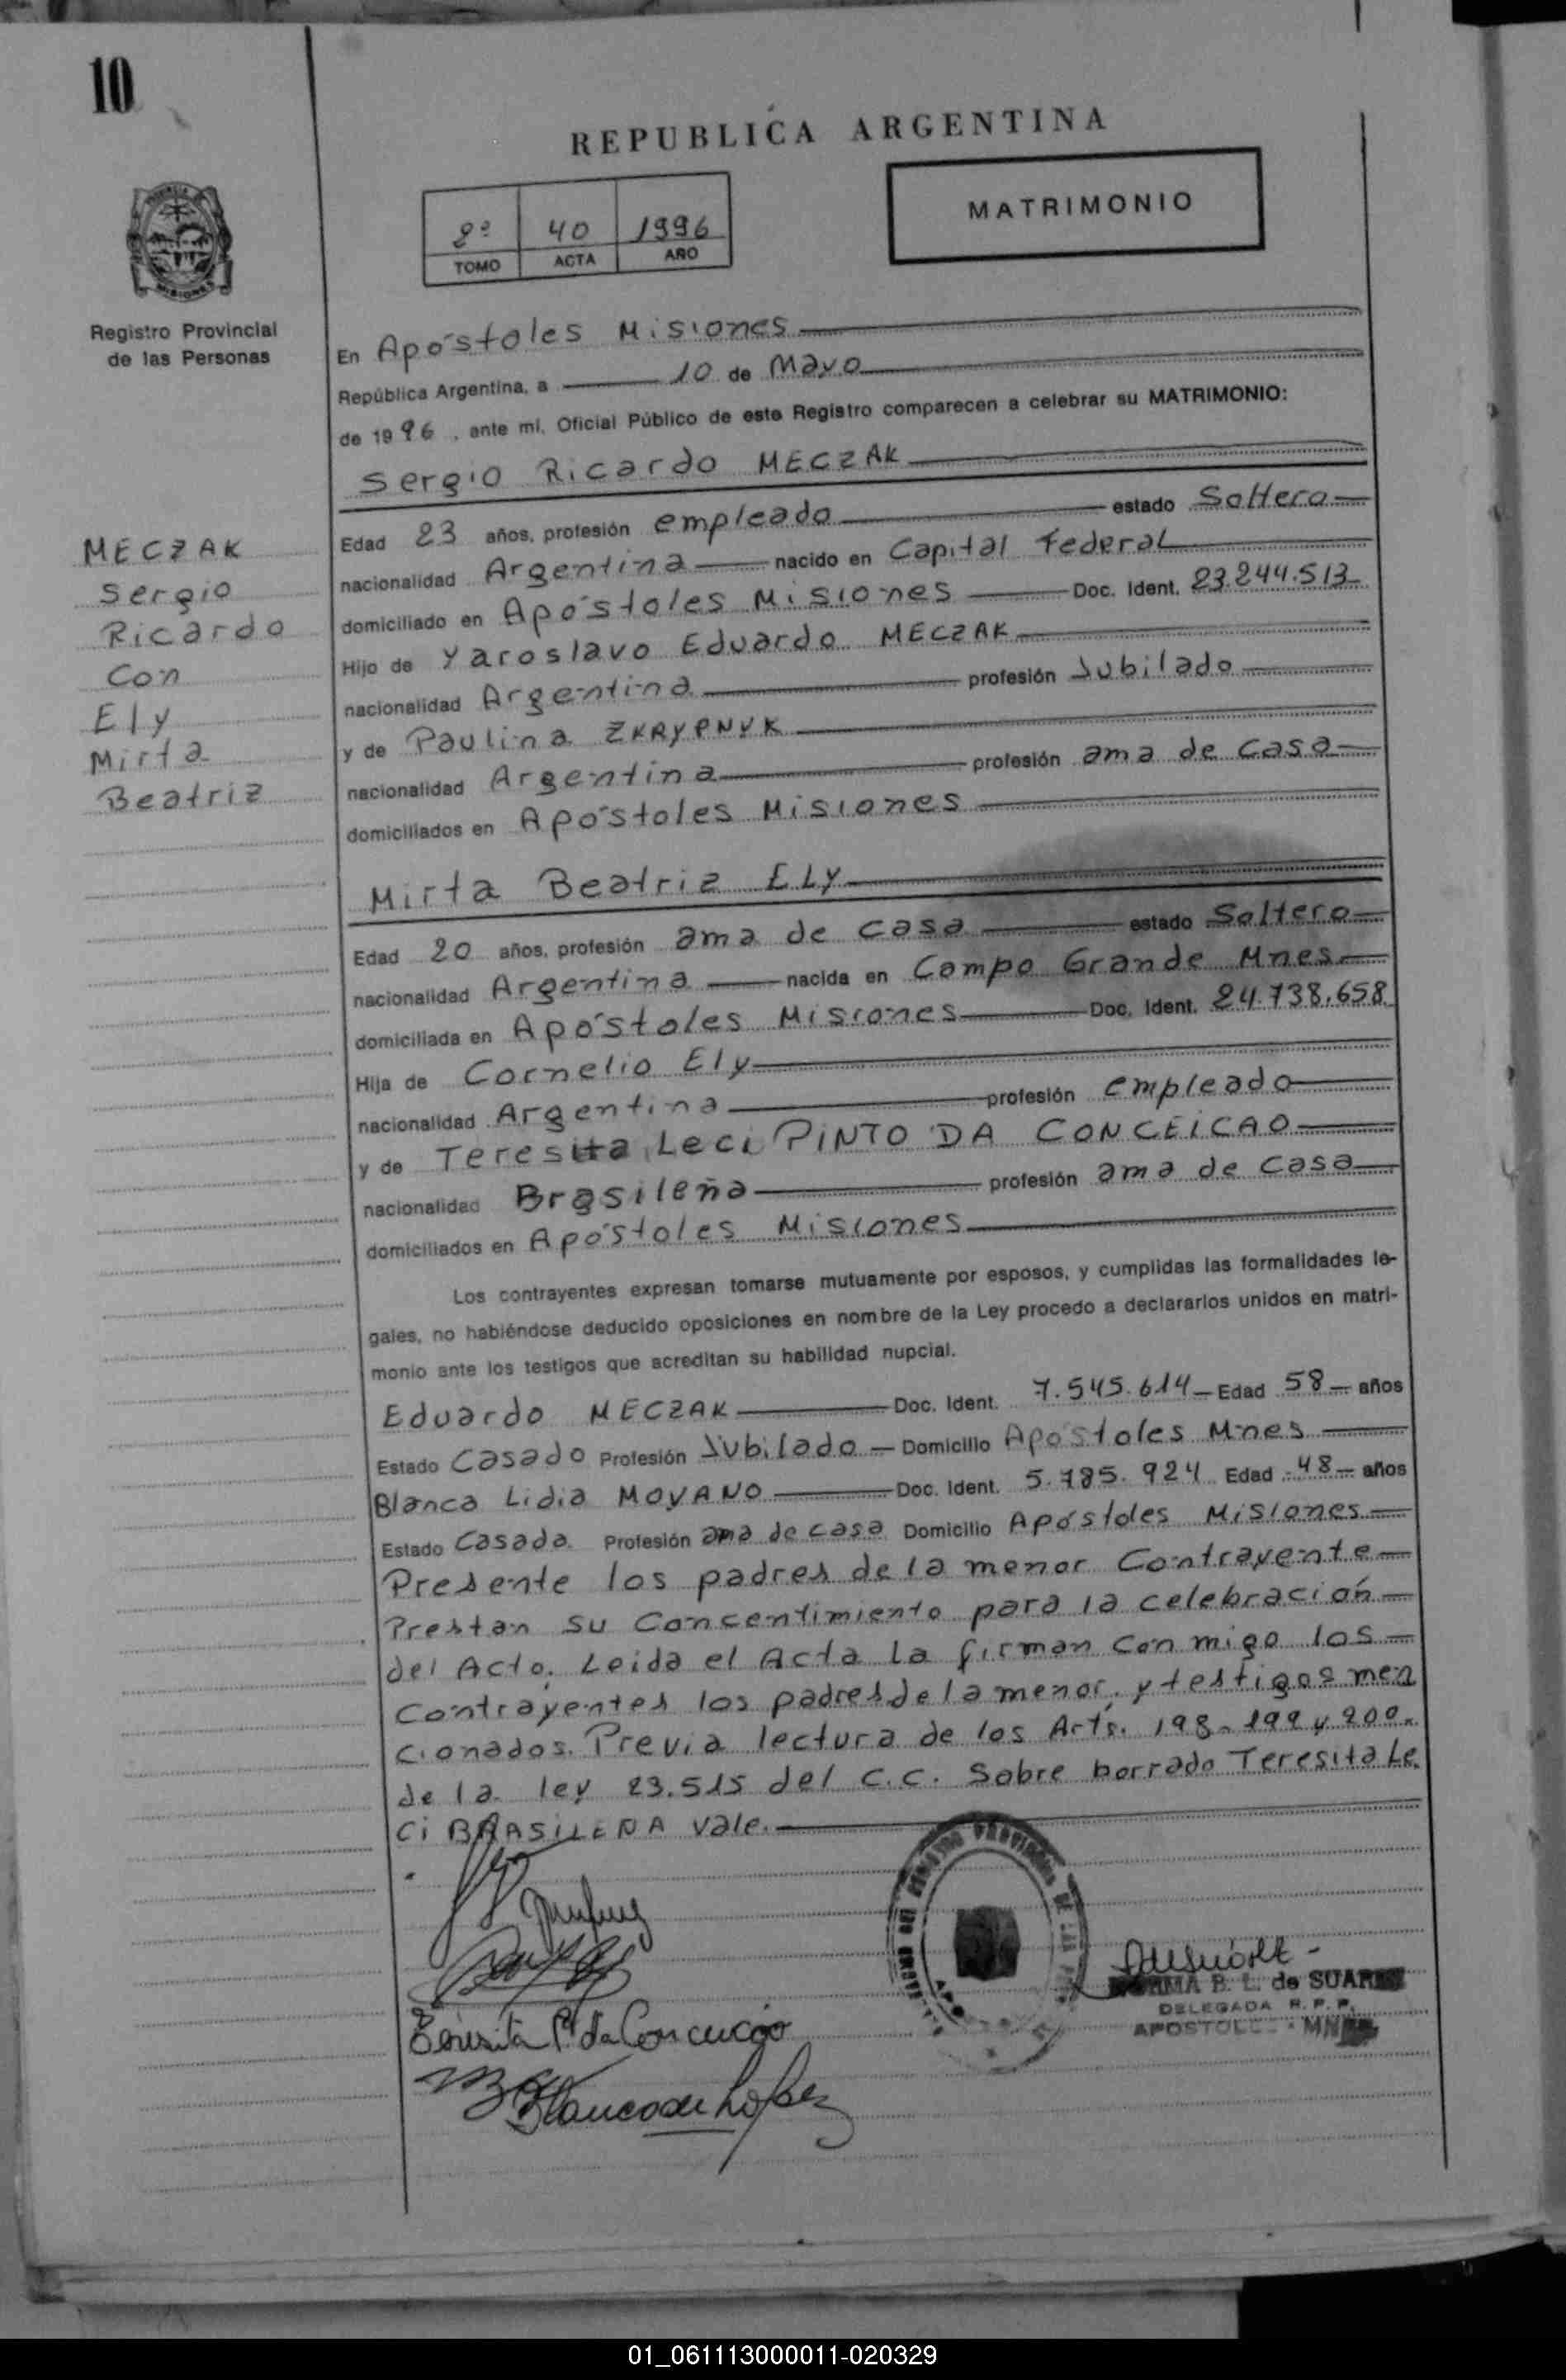 10
REPUBLICA ARGENTINA
MATRIMONIO
2º 40 1996
TOMO ACTA AÑO
Registro Provincial
de las Personas
MECZAK
Sergio
Ricardo
Con
Ely
Mirta
Beatriz
En Apóstoles Misiones
República Argentina, a 10 de Mayo
de 1996, ante mí, Oficial Público de este Registro comparecen a celebrar su MATRIMONIO:
Sergio Ricardo MECZAK
Edad 23 años, profesión empleado estado Soltero
nacionalidad Argentina nacido en Capital Federal
domiciliado en Apóstoles Misiones Doc. Ident. 23.244.513
Hijo de Yaroslavo Eduardo MECZAK
nacionalidad Argentina profesión Jubilado
y de Paulina ZKRYPNYK
nacionalidad Argentina profesión ama de casa
domiciliados en Apóstoles Misiones
Mirta Beatriz ELY
Edad 20 años, profesión ama de casa estado Soltero
nacionalidad Argentina nacida en Campo Grande Mnes
domiciliada en Apóstoles Misiones Doc. Ident. 24.738.658
Hija de Cornelio Ely
nacionalidad Argentina profesión empleado
y de Teresita Leci PINTO DA CONCEICAO
nacionalidad Brasileña profesión ama de casa
domiciliados en Apóstoles Misiones
Los contrayentes expresan tomarse mutuamente por esposos, y cumplidas las formalidades le-
gales, no habiéndose deducido oposiciones en nombre de la Ley procedo a declararlos unidos en matri-
monio ante los testigos que acreditan su habilidad nupcial.
Eduardo MECZAK Doc. Ident. 7.545.614 Edad 58 años
Estado Casado Profesión Jubilado Domicilio Apóstoles Mnes
Blanca Lidia MOYANO Doc. Ident. 5.785.924 Edad 48 años
Estado Casada Profesión ama de casa Domicilio Apóstoles Misiones
Presente los padres de la menor Contrayente
Prestan su Concentimiento para la celebración
del Acto. Leida el Acta La firman con migo los
Contrayentes los padres de la menor, y testigos men
cionados. Previa lectura de los Arts. 198-199 y 200.
de la ley 23.515 del C.C. Sobre borrado Teresita Le
Ci BRASILEÑA vale.
Teresita P. da Conceicao
Blanca de Lopez
NORMA B. L. de SUAREZ
DELEGADA R. P. P.
APOSTOLES - MNES
01_061113000011-020329